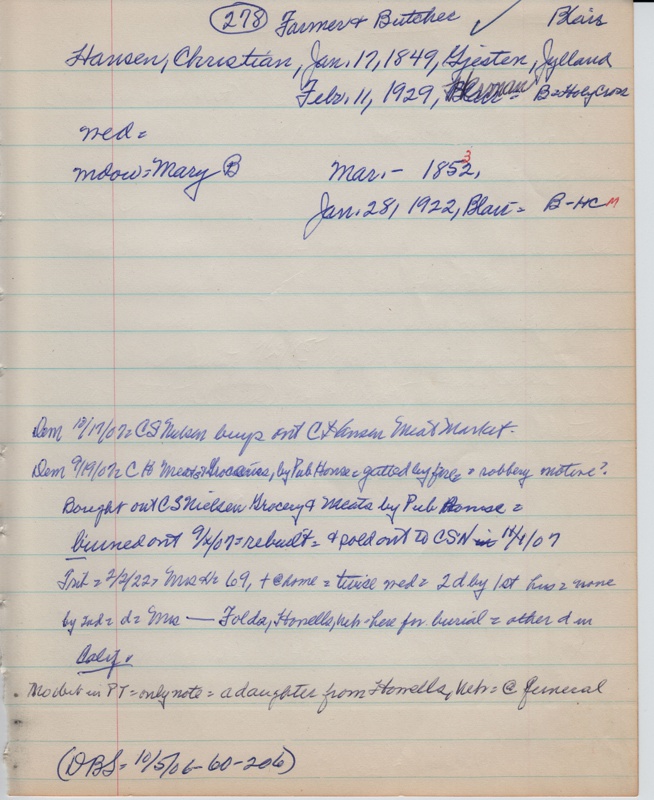 278 Farmer & Butcher ✓ Blair
Hansen, Christian, Jan. 17, 1849, Gjesten, Jylland
Febr. 11, 1929, Herman = B = Holy Cross
wed =
widow = Mary B Mar. - 1852, 3
Jan. 28, 1922, Blair = B-HC M
Dem 12/17/07 = CS Nielsen buys out C Hansen Meat Market -
Dem 9/19/07 = C H Meats & Groceries, by Pub House = gutted by fire = robbery motive?
Bought out CS Nielsen Grocery & Meats by Pub House =
burned out 9/2/07 = rebuilt = & sold out to CSN in 12/1/07
Trib = 2/2/22 = Mrs H = 69, + @ home = twice wed = 2 d by 1st hus = none
by 2nd = d = Mrs — Folda, Howells, Neb = here for burial = other d in
Calif.
No obit in PT = only note = a daughter from Howells, Neb = @ funeral
(DBS = 10/5/06 - 60 - 206)